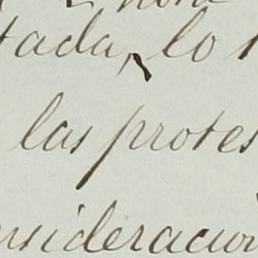 tada, lo
las protes
nsideracion